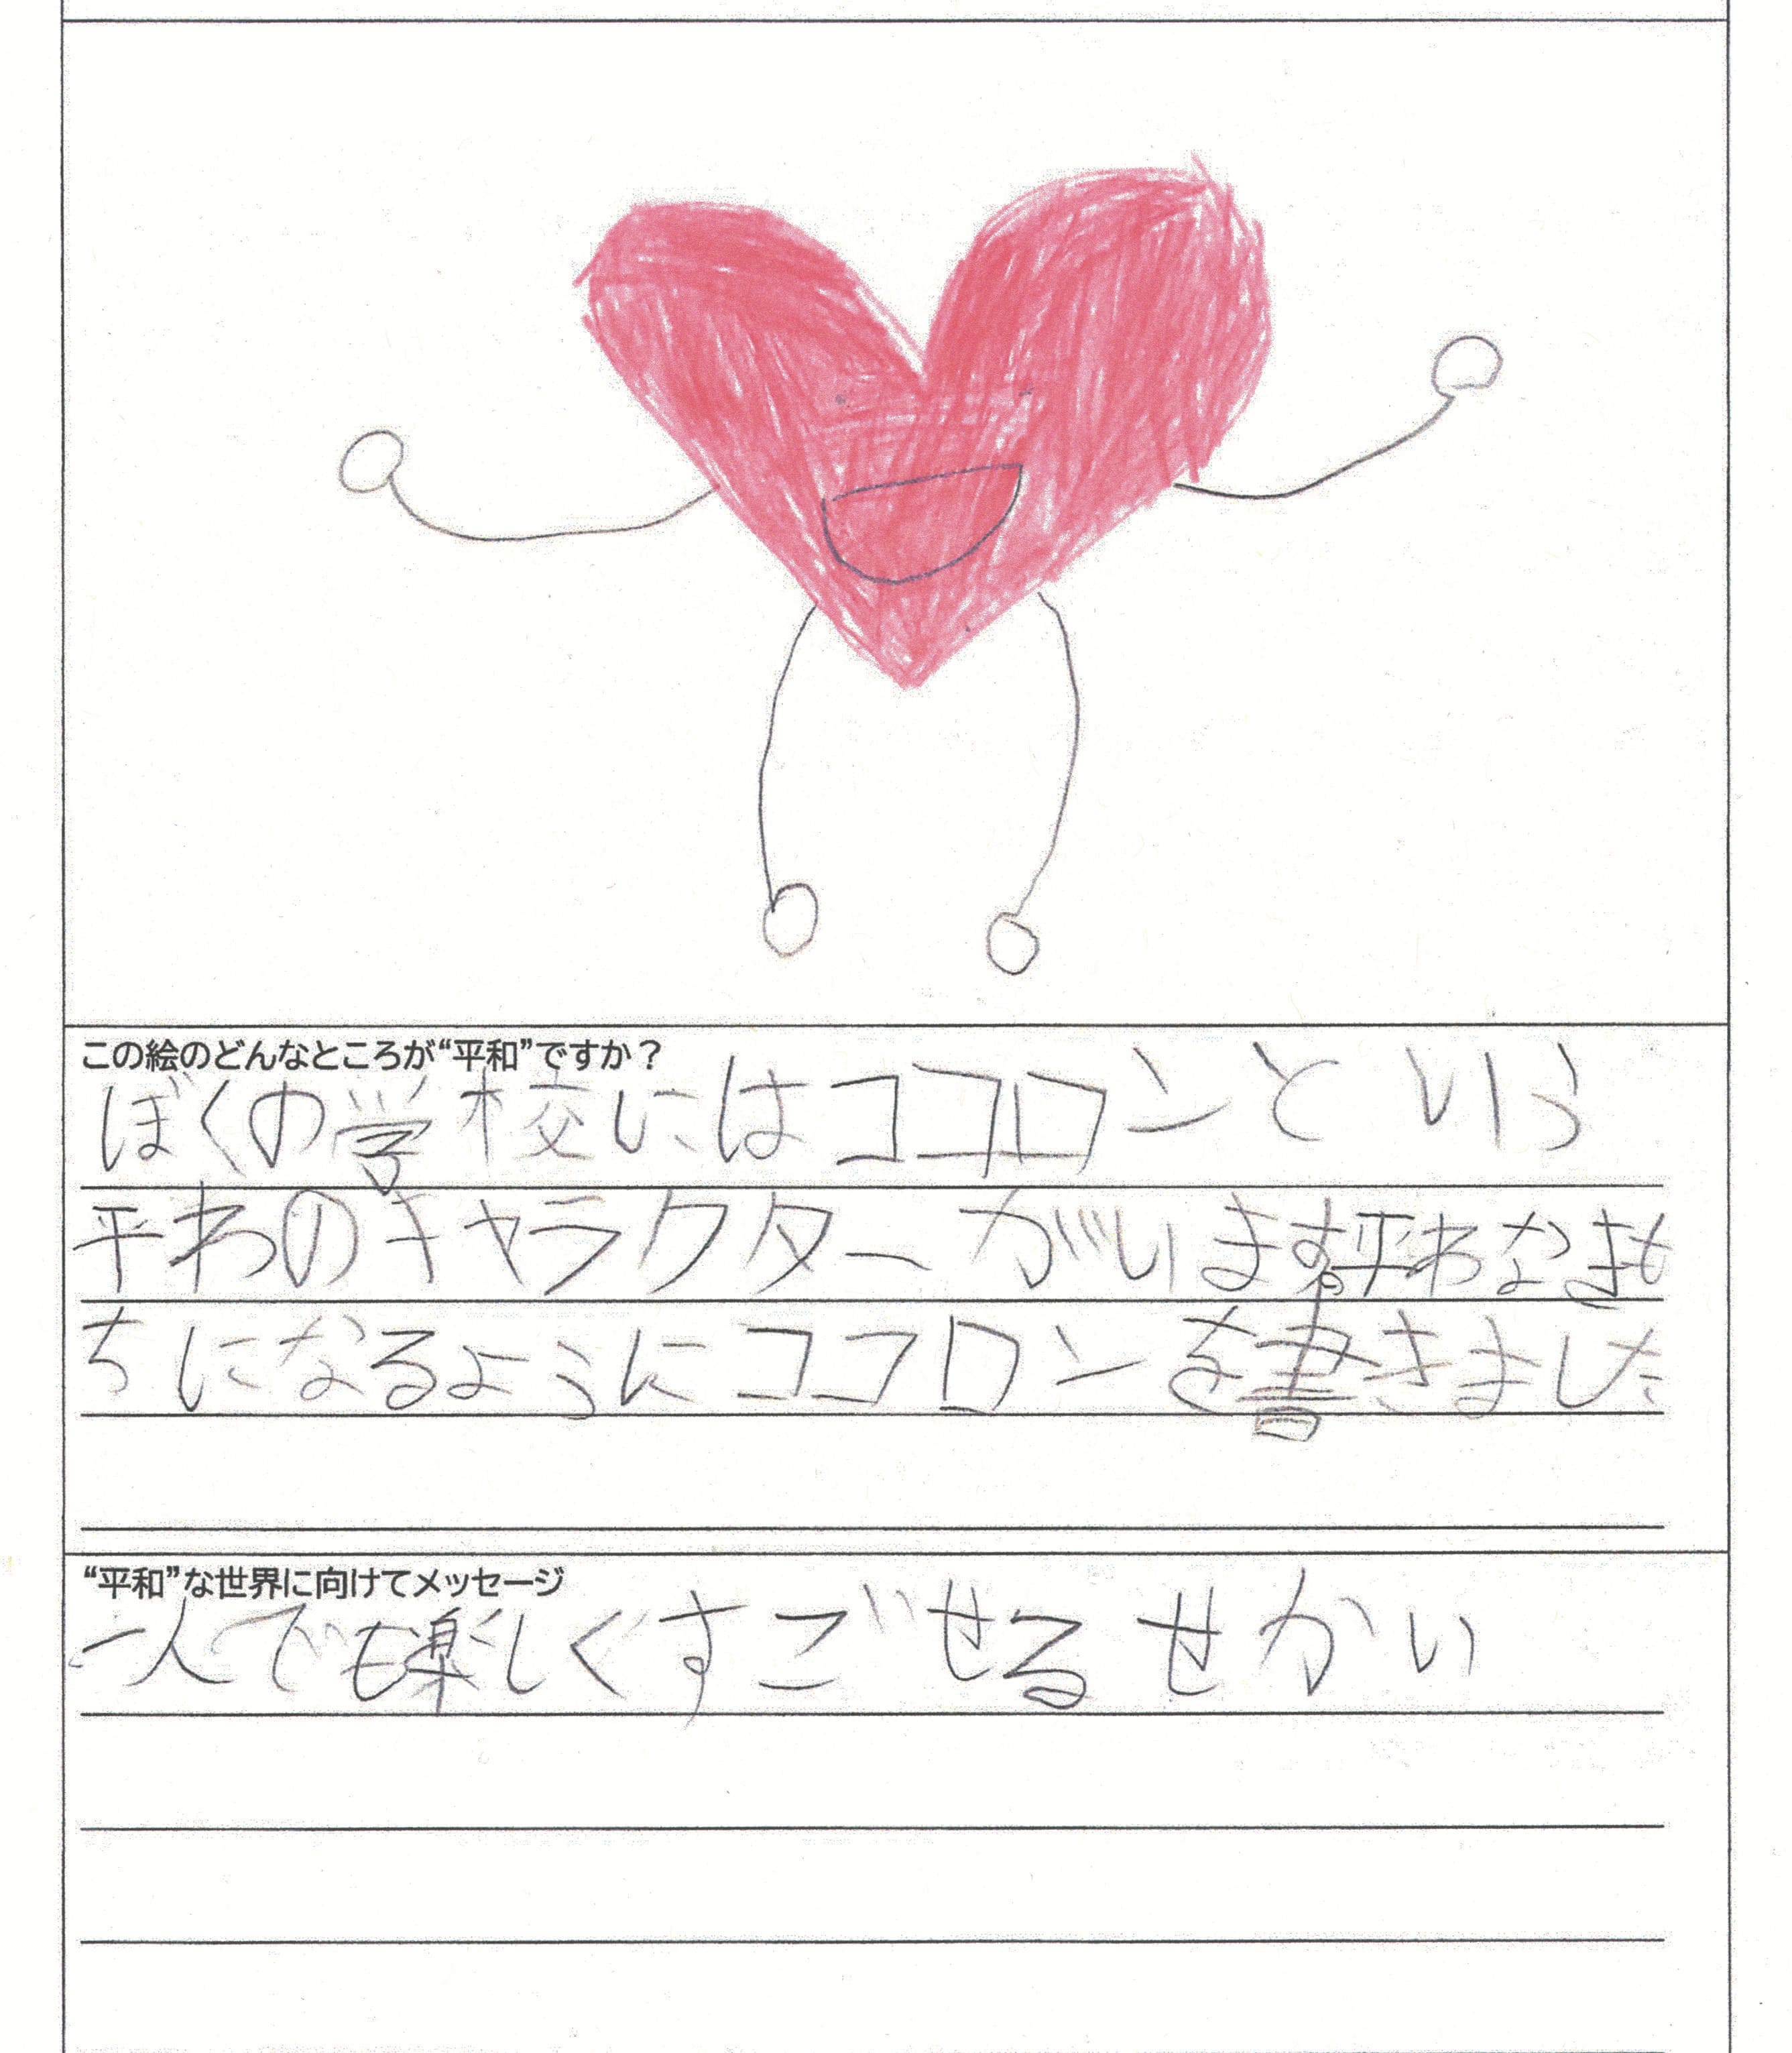 この絵のどんなところが“平和”ですか？
ぼくの学校にはココロンという
平わのキャラクターがいます。平わなきも
ちになるようにココロンを書きました
“平和”な世界に向けてメッセージ
一人でも楽しくすごせるせかい